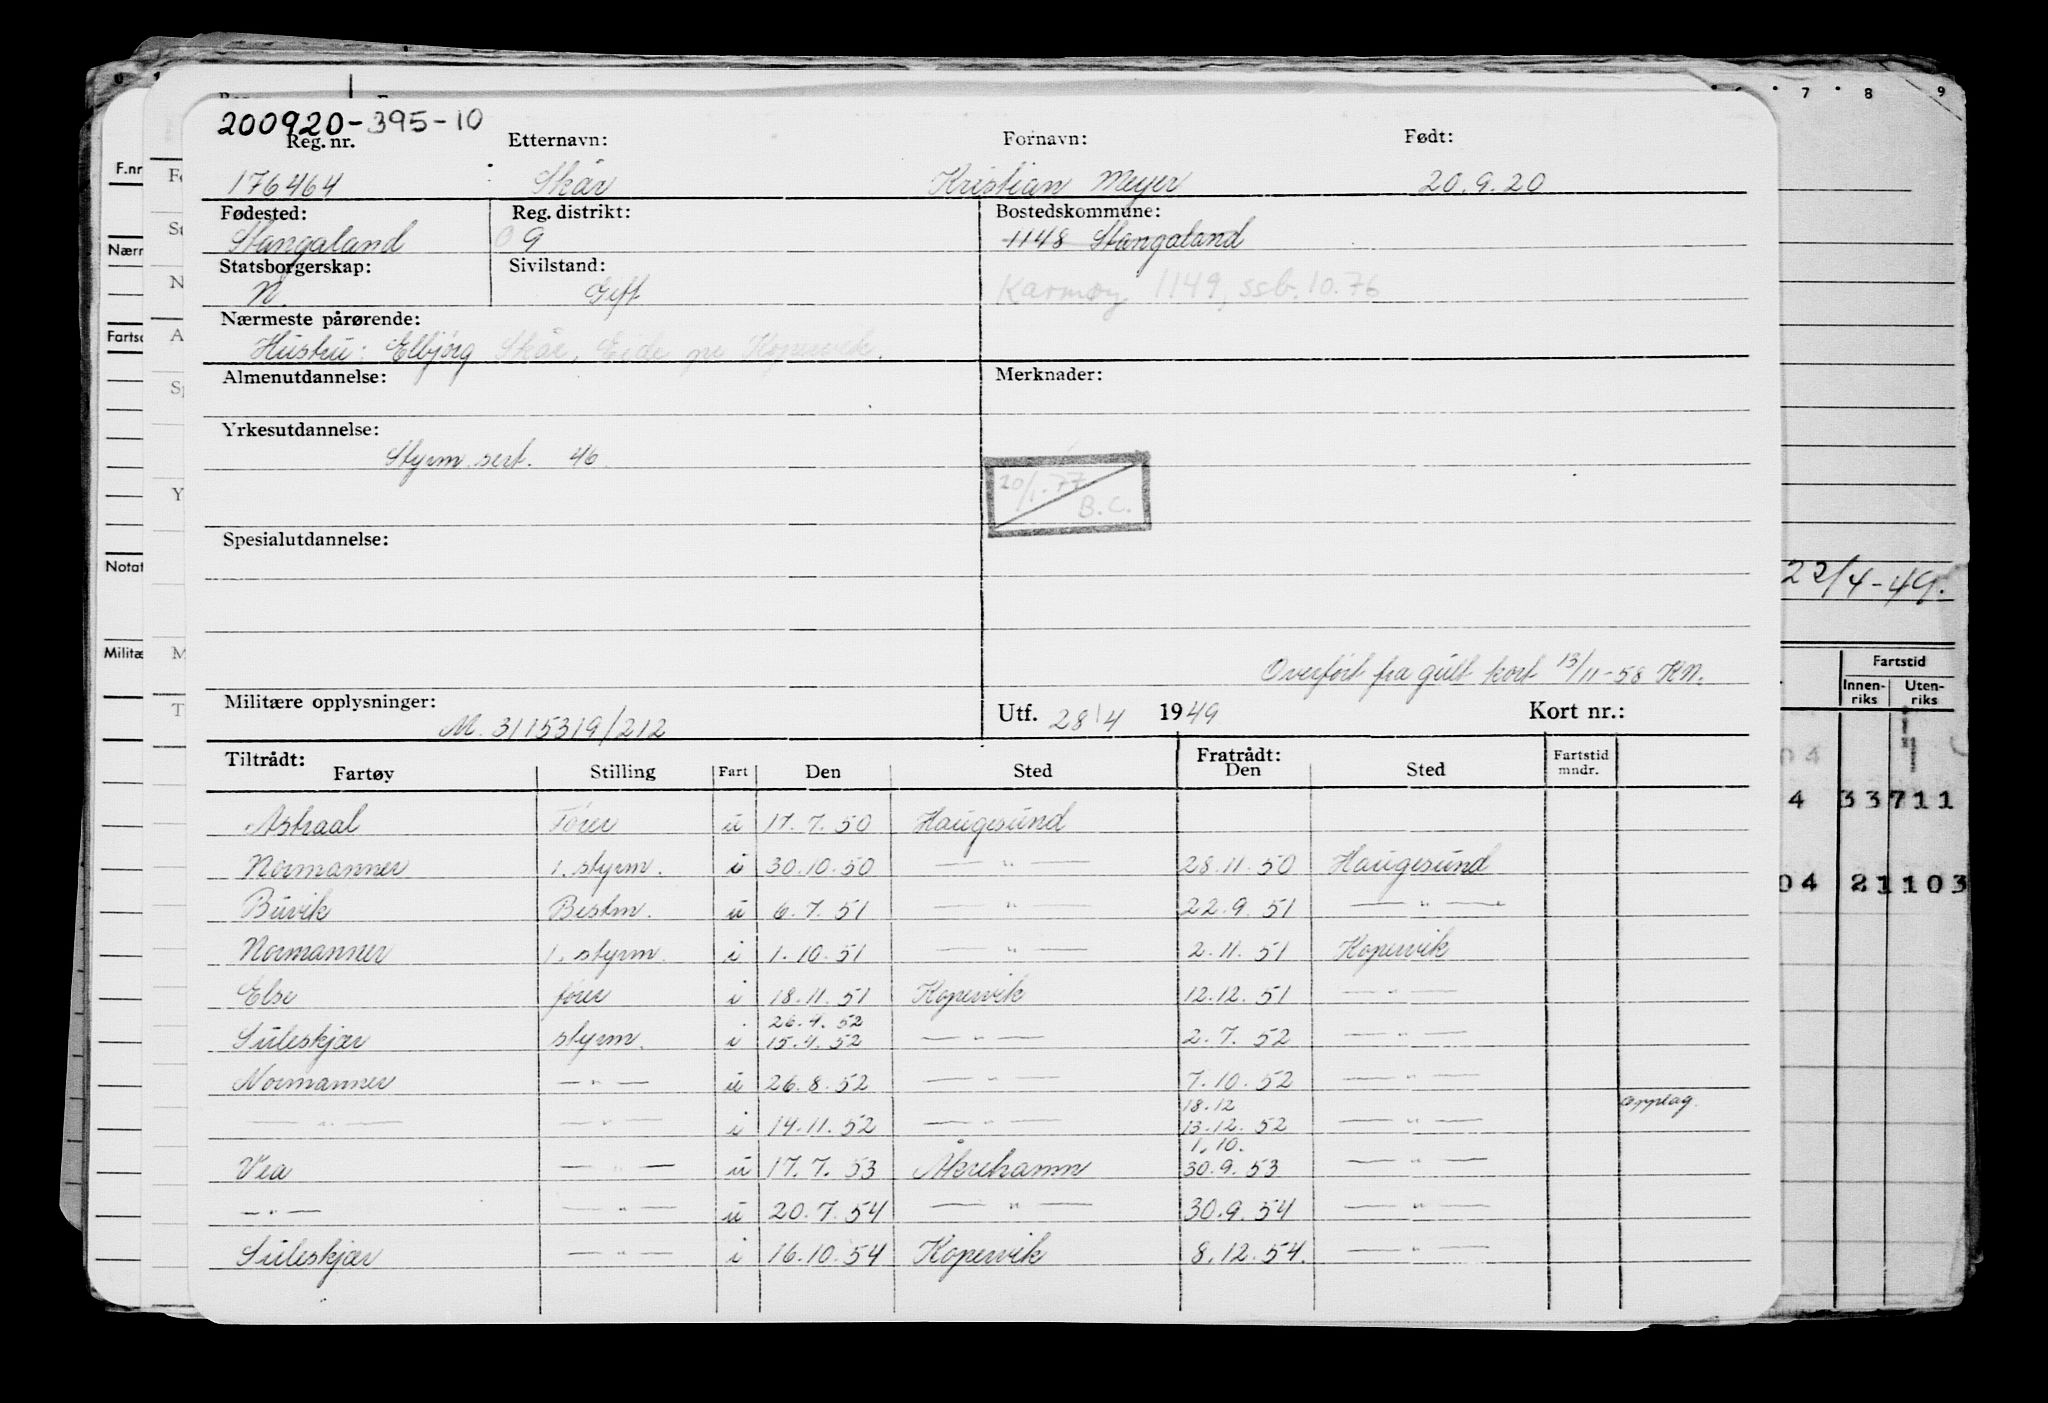 200920-395-10
Reg. nr. Etternavn: Fornavn: Født:
176464 Skår Kristian Meyer 20.9.20
Fødested: Reg. distrikt: Bostedskommune:
Stangaland 09 1148 Stangaland
Statsborgerskap: Sivilstand:
N. Gift Karmøy 1149, ssb. 10.76
Nærmeste pårørende:
Hustru: Elbjørg Skår, Eide pr Kopervik.
Almenutdannelse: Merknader:
Yrkesutdannelse:
Styrm. sert. 46.
20/1.77
B.C.
Spesialutdannelse:
Overført fra gult kort 13/11-58 KN.
Militære opplysninger: Utf. 28/4 1949 Kort nr.:
M. 3115319/212
Tiltrådt: Fratrådt:
Fartøy Stilling Fart Den Sted Den Sted Fartstid mndr.
Astraal Fører u 17.7.50 Haugesund
Normanner 1. styrm. i 30.10.50 — " — 28.11.50 Haugesund
Buvik Bestm. u 6.7.51 — " — 22.9.51 — " —
Normanner 1. styrm. i 1.10.51 — " — 2.11.51 Kopervik
Else fører i 18.11.51 Kopervik 12.12.51 — " —
26.4.52
Suleskjær styrm. i 15.4.52 — " — 2.7.52 — " —
Normanner — " — u 26.8.52 — " — 7.10.52 — " —
18.12 opplag.
— " — — " — i 14.11.52 — " — 13.12.52 — " —
1.10.
Vea — " — u 17.7.53 Åkrehamn 30.9.53 — " —
— " — — " — u 20.7.54 — " — 30.9.54 — " —
Suleskjær — " — i 16.10.54 Kopervik 8.12.54. — " —
7 8 9
22/4-49.
Fartstid
Innenriks Utenriks
04
4 33 711
04 21 103
F.nr
Nærm
Fartso
Notat
Militæ